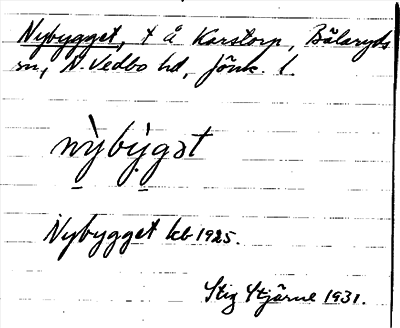 Nybygget, t å Karstorp, Bälaryds
sn, N. Vedbo hd, Jönk. l.
nỳbỳgət
Nybygget kb 1925.
Stig Stjärne 1931.